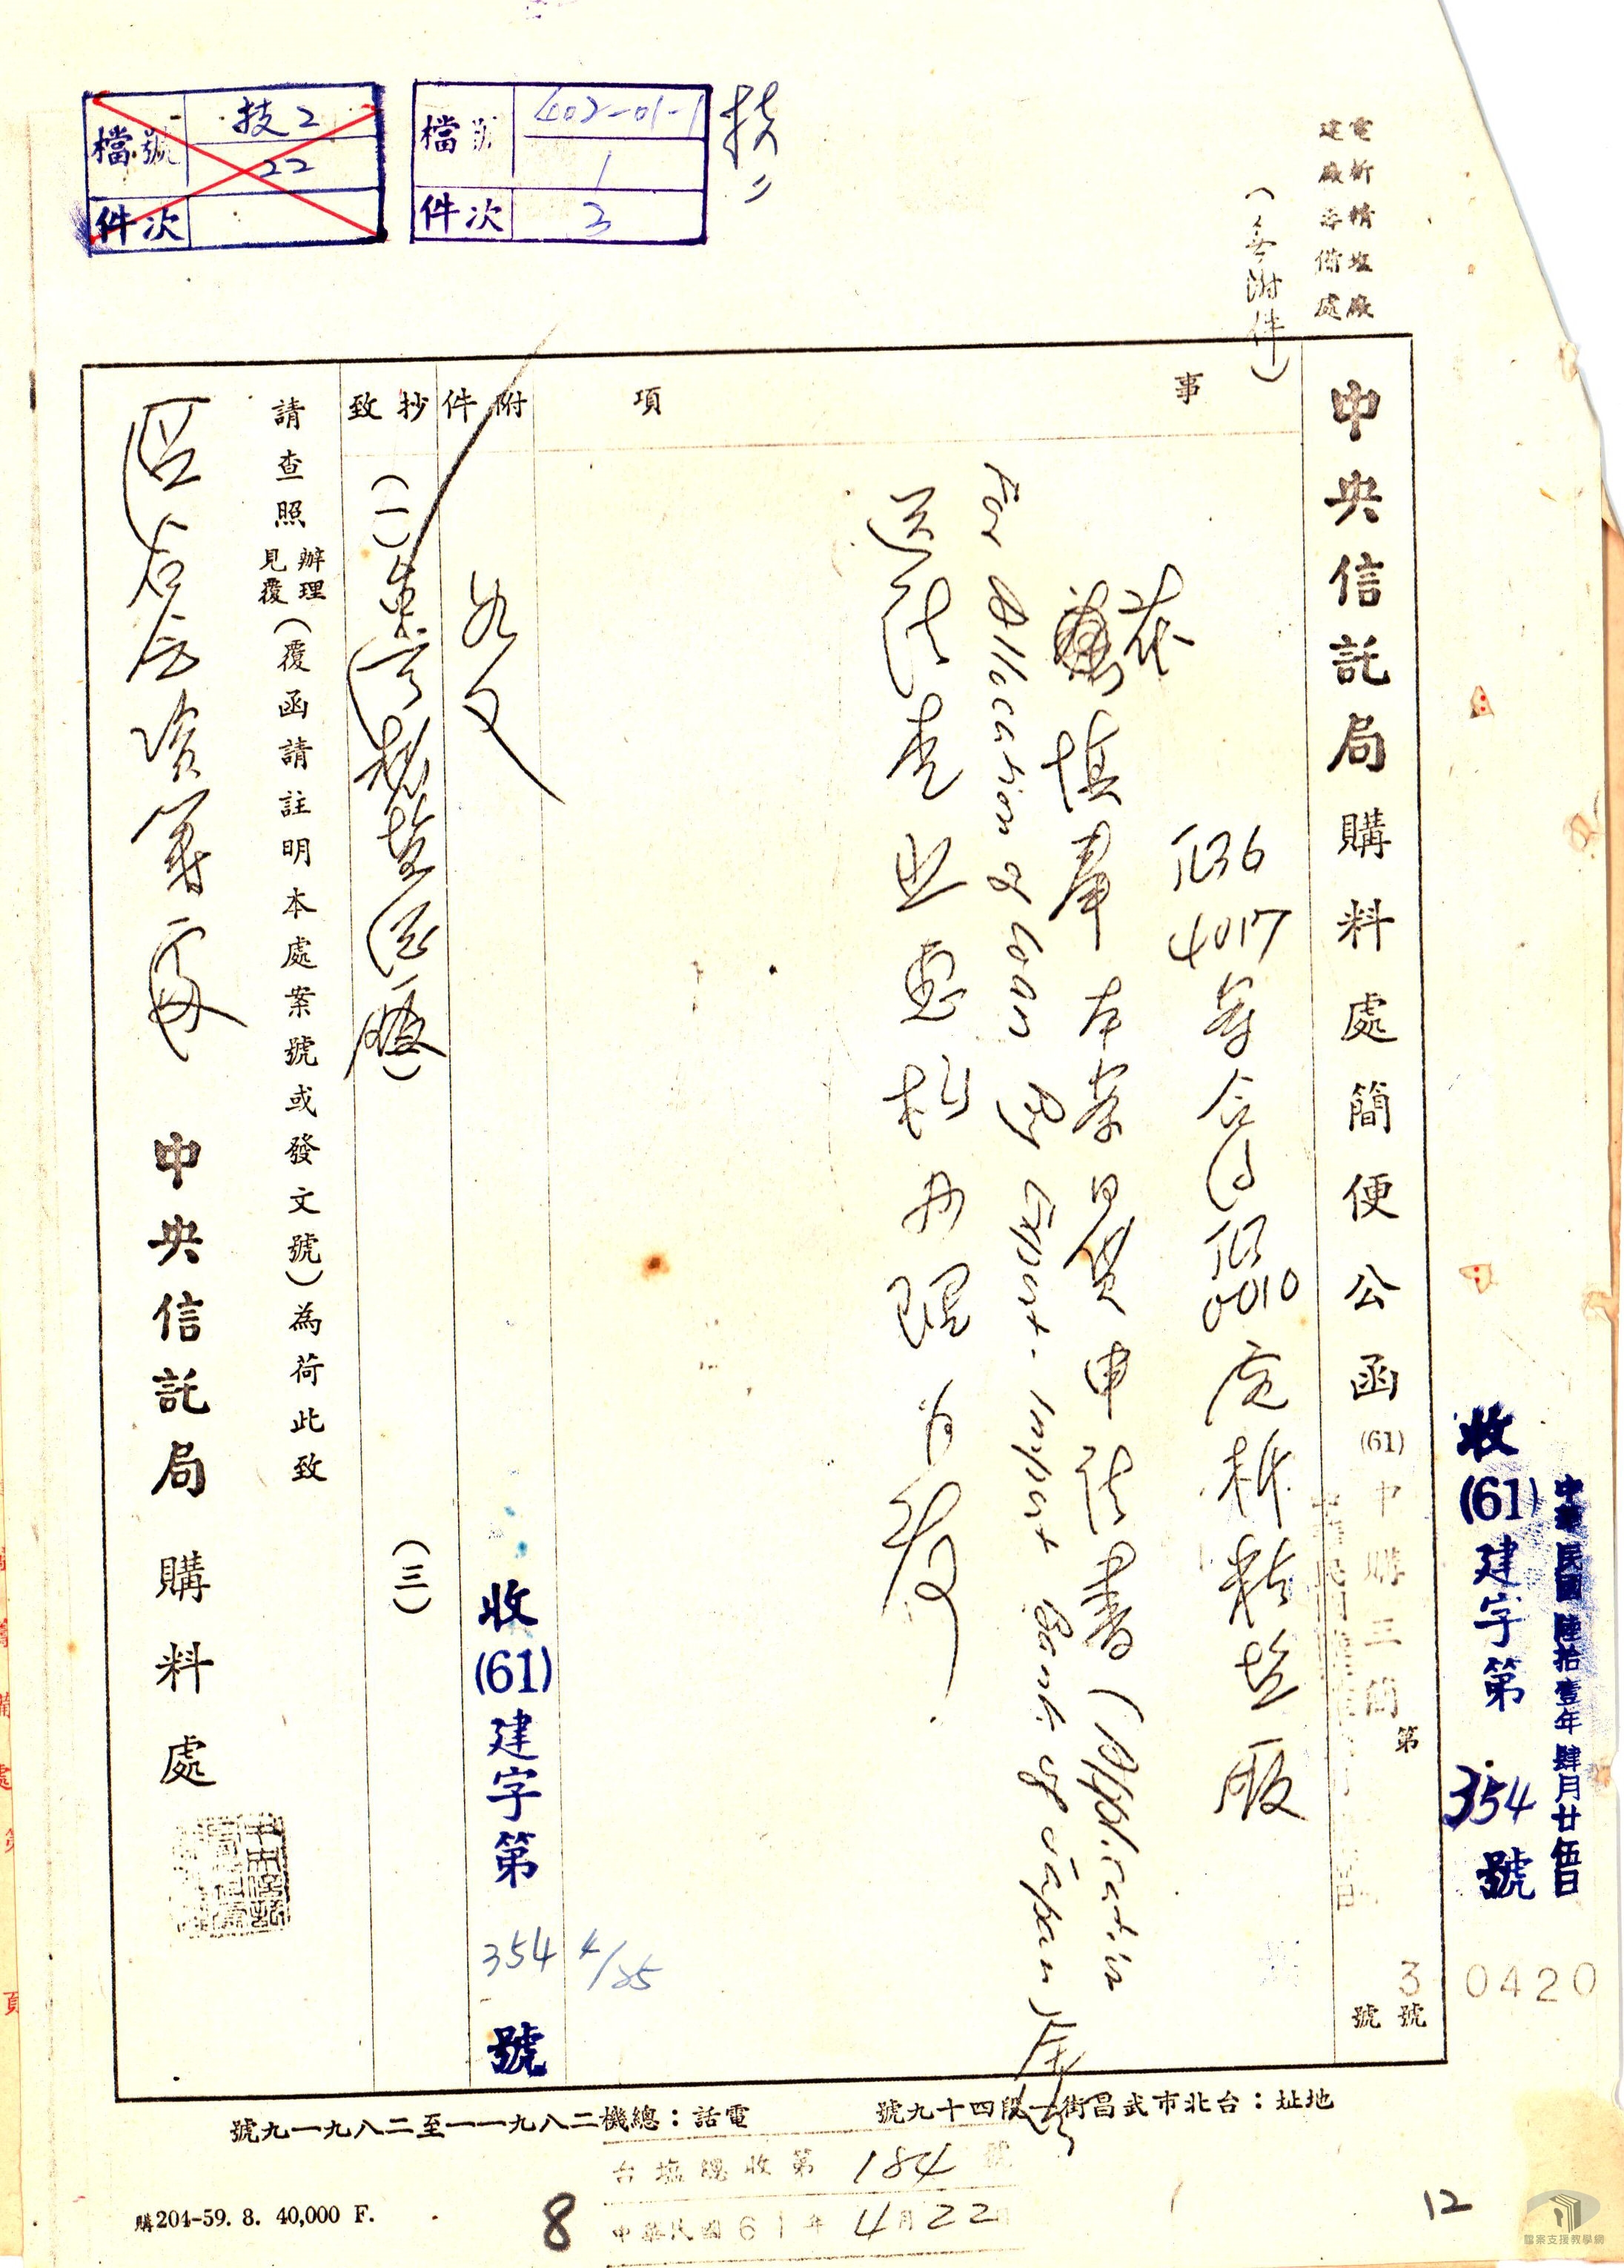 檔號 技2
22
件次
檔號 402-01-1
1
件次 3
技
電析精鹽廠
建廠籌備處
(無附件)
中央信託局購料處簡便公函
(61)中購三簡
第
3 0420
號
號
事項
4017
0010
茲
填奉本案日貸申請書(Application
for Allocation of Loan by Export-Import Bank of Japan)
送請查照惠於辦理為荷
附件
如文
抄致
(一)
(三)
請查照辦理見覆(覆函請註明本處案號或發文號)為荷此致
中央信託局購料處
收(61)建字第354號
4/25
收(61)建字第354號
中華民國陸拾壹年肆月廿伍日
地址:台北市武昌街一段四十九號
電話:總機二八九一一一至二八九一九號
台鹽總收第184號
中華民國61年4月22日
購204-59. 8. 40,000 F.
8
12
檔案支援教學網